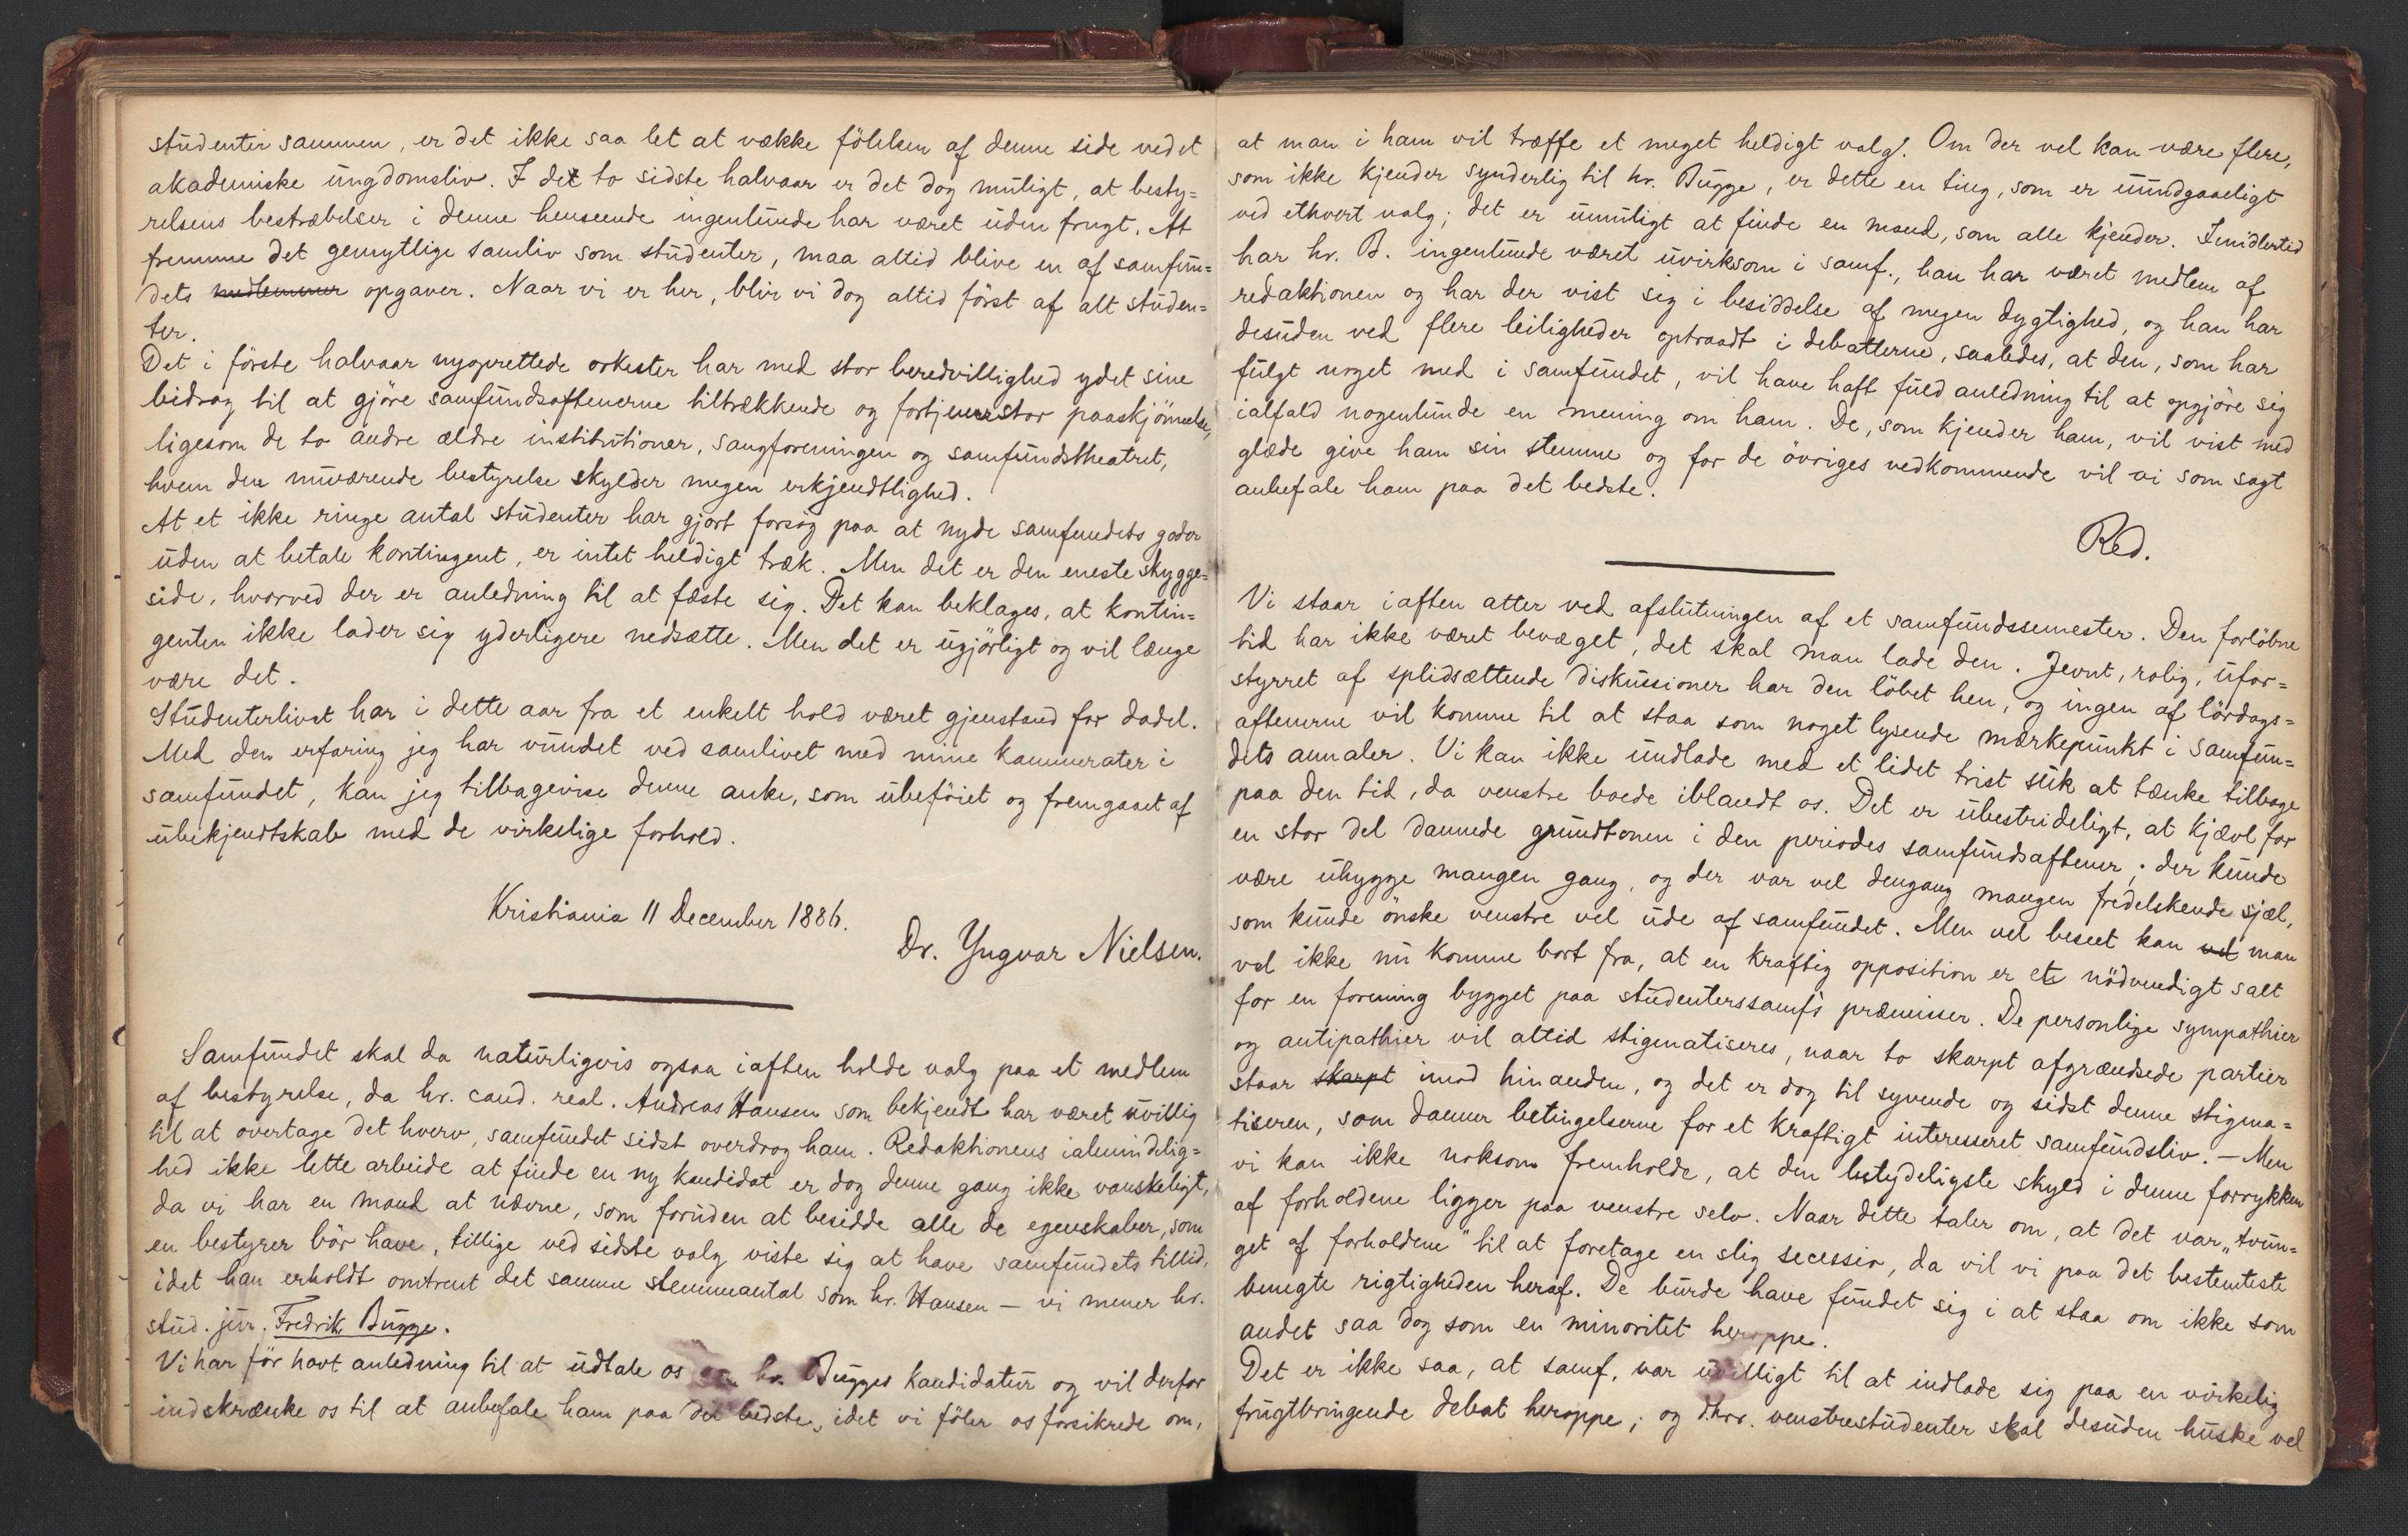 studenter sammen, er det ikke saa let at vække fölelsen af denne side ved et
akademiske ungdomsliv. I det to sidste halvaar er det dog muligt, at besty=
relsens bestræbelser i denne henseende ingenlunde har været uden frugt. At
fremme det gemytlige samliv som studenter, maa altid blive en af samfun=
dets medlemmer opgaver. Naar vi er her, blir vi dog altid först af alt studen=
ter.
Det i förste halvaar nyoprettede orkester har med stor beredvillighed ydet sine
bidrag til at gjöre samfundsaftenerne tiltrækkende og fortjener stor paaskjönnelse,
ligesom de to andre ældre institutioner, sangforeningen og samfundstheatret,
hvem den nuværende bestyrelse skylder megen erkjendtlighed.
At et ikke ringe antal studenter har gjort forsög paa at nyde samfundets goder
uden at betale kontingent, er intet heldigt træk. Men det er den eneste skygge=
side, hvorved der er anledning til at fæste sig. Det kan beklages, at kontin=
genten ikke lader sig yderligere nedsætte. Men det er ugjörligt og vil længe
være det.
Studenterlivet har i dette aar fra et enkelt hold været gjenstand for dadel.
Med den erfaring jeg har vundet ved samlivet med mine kammerater i
samfundet, kan jeg tilbagevise denne anke, som ubeföiet og fremgaaet af
ubekjendtskab med de virkelige forhold.
Kristiania 11 December 1886.
Dr. Yngvar Nielsen.
Samfundet skal da naturligvis ogsaa iaften holde valg paa et medlem
af bestyrelse, da hr. cand. real. Andreas Hansen som bekjendt har været uvillig
til at overtage det hverv, samfundet sidst overdrog ham. Redaktionens ialmindelig=
hed ikke lette arbeide at finde en ny kandidat er dog denne gang ikke vanskeligt,
da vi har en mand at nævne, som foruden at besidde alle de egenskaber, som
en bestyrer bör have, tillige ved sidste valg viste sig at have samfundets tillid,
idet han erholdt omtrent det samme stemmeantal som hr. Hansen – vi mener hr.
stud. jur. Fredrik Bugge.
Vi har för havt anledning til at udtale os om hr. Bugges kandidatur og vil derfor
indskrænke os til at anbefale ham paa det bedste, idet vi föler os forsikrede om,
at man i ham vil træffe et meget heldigt valg. Om der vel kan være flere,
som ikke kjender synderlig til hr. Bugge, er dette en ting, som er uundgaaeligt
ved ethvert valg; det er umuligt at finde en mand, som alle kjender. Imidlertid
har hr. B. ingenlunde været uvirksom i samf., han har været medlem af
redaktionen og har der vist sig i besiddelse af megen dygtighed, og han har
desuden ved flere leiligheder optraadt i debatterne, saaledes, at den, som har
fulgt noget med i samfundet, vil have haft fuld anledning til at opgjöre sig
ialfald nogenlunde en mening om ham. De, som kjender ham, vil vist med
glæde give ham sin stemme og for de övriges vedkommende vil vi som sagt
anbefale ham paa det bedste.
Red.
Vi staar iaften atter ved afslutningen af et samfundssemester. Den forlöbne
tid har ikke været bevæget, det skal man lade den. Jevnt, rolig, ufor=
styrret af splidsættende diskussioner har den löbet hen, og ingen af lördags=
aftenerne vil komme til at staa som noget lysende mærkepunkt i samfun=
dets annaler. Vi kan ikke undlade med et lidet trist suk at tænke tilbage
paa den tid, da venstre boede iblandt os. Det er ubestrideligt, at kjævl for
en stor del dannede grundtonen i den periodes samfundsaftener; der kunde
være uhygge mangen gang, og der var vel dengang mangen fredelskende sjæl,
som kunde önske venstre vel ude af samfundet. Men vel beseet kan vel man
vel ikke nu komme bort fra, at en kraftig opposition er et nödvendigt salt
for en forening bygget paa studenterssamf's præmisser. De personlige sympathier
og antipathier vil altid stigmatiseres, naar to skarpt afgrændsede partier
staar skarpt imod hinanden, og det er dog til syvende og sidst denne stigma=
tiseren, som danner betingelserne for et kraftigt interesseret samfundsliv. – Men
vi kan ikke noksom fremholde, at den betydeligste skyld i denne forrykken
af forholdene ligger paa venstre selv. Naar dette taler om, at det var „tvun=
get af forholdene" til at foretage en slig secession, da vil vi paa det bestemteste
benegte rigtigheden heraf. De burde have fundet sig i at staa om ikke som
andet saa dog som en minoritet heroppe.
Det er ikke saa, at samf. var uvilligt til at indlade sig paa en virkelig
frugtbringende debat heroppe; og dhrr. venstrestudenter skal desuden huske vel